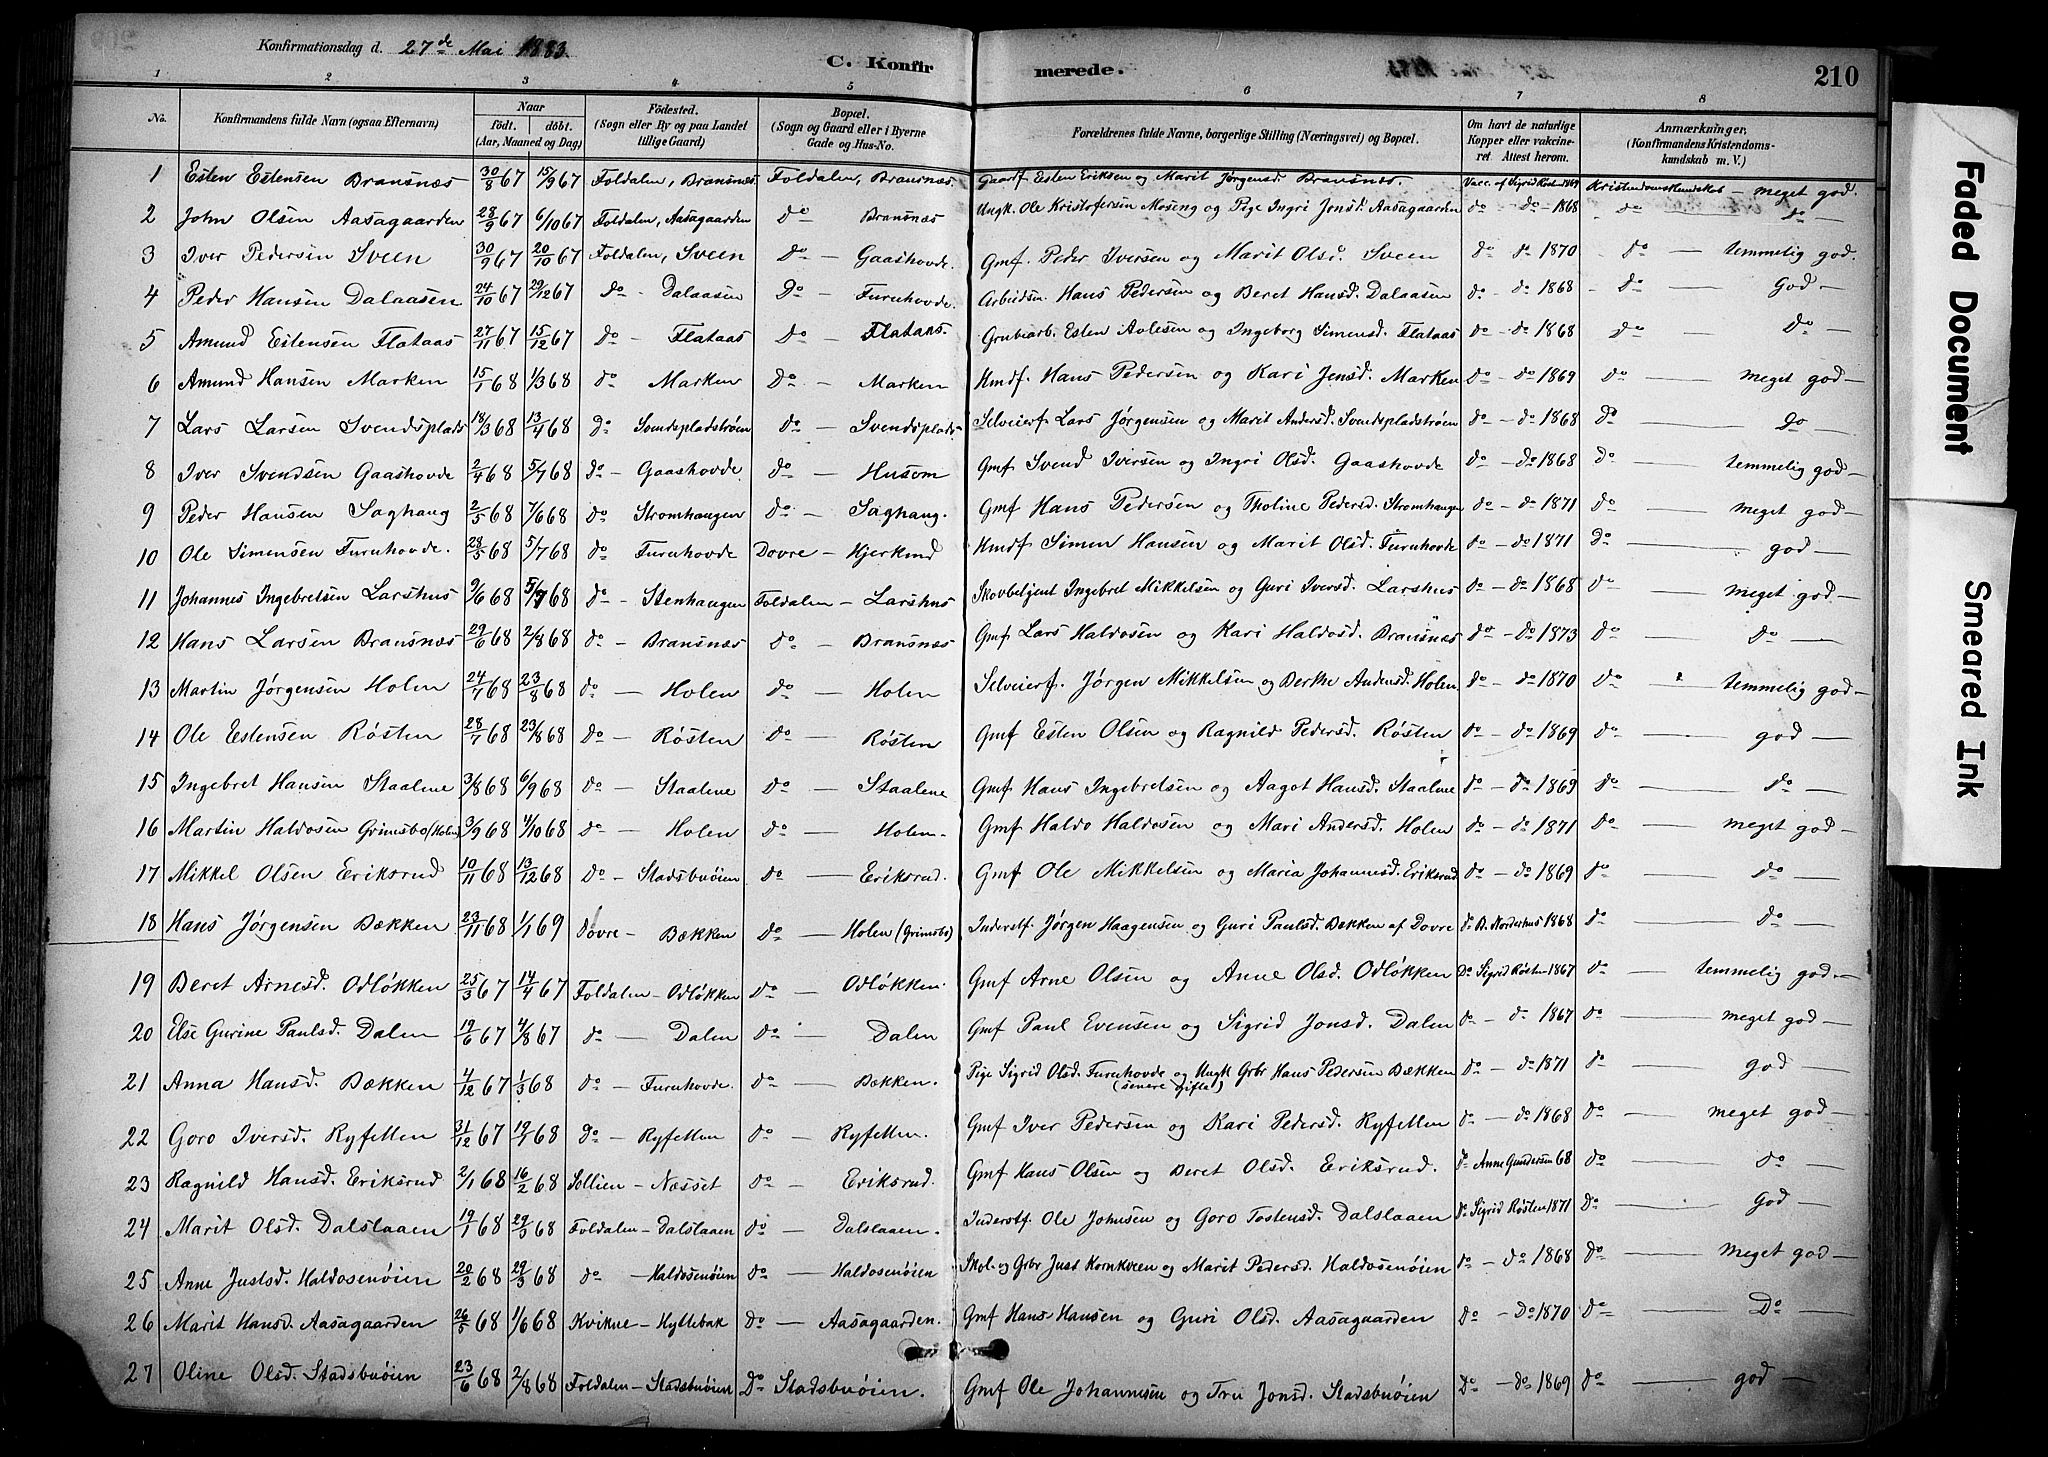 Konfirmationsdag d. 27de Mai 1883.
C. Konfirmerede.
210
1 2 3 4 5 6 7 8
No. Konfirmandens fulde Navn (ogsaa Efternavn) Naar født. døbt. (Aar, Maaned og Dag) Fødested. (Sogn eller By og paa Landet tillige Gaard) Bopæl. (Sogn og Gaard eller i Byerne Gade og Hus-No. Forældrenes fulde Navne, borgerlige Stilling (Næringsvei) og Bopæl. Om havt de naturlige Kopper eller vaccineret. Attest herom. Anmærkninger, (Konfirmandens Kristendomskundskab m. V.)
1 Esten Estensen Bransnæs 30/8 67 15/9 67 Foldalen, Bransnæs Foldalen, Bransnæs Gaardf. Esten Eriksen og Marit Jørgensd. Bransnæs. Vacc. af Sigrid Røsten 1869 Kristendomskundskab – meget god.
2 John Olsen Aasagaarden 28/9 67 6/10 67 Foldalen, Aasagaarden do Bransnæs Ungk. Ole Kristofersen Moseng og Pige Ingri Jonsd. Aasagaarden do – do 1868 do do –
3 Iver Pedersen Sveen 30/9 67 20/10 67 Foldalen, Sveen do – Gaashovde. Gmf. Peder Iversen og Marit Olsd. Sveen do do 1870 do – temmelig god.
4 Peder Hansen Dalaasen 24/10 67 29/12 67 do – Dalaasen Do – Furuhovde. Arbeidsm. Hans Pedersen og Beret Hansd. Dalaasen do – do 1868 do – God –
5 Amund Estensen Flataas 27/11 67 15/12 67 do – Flataas Do – Flataas. Grubearb. Esten Avlesen og Ingeborg Simensd. Flataas do – do 1868 do – do –
6 Amund Hansen Marken 15/1 68 1/3 68 do – Marken Do – Marken Hmdf. Hans Pedersen og Kari Jensd. Marken do – do 1869 do – meget god –
7 Lars Larsen Svendsplads 18/3 68 13/4 68 do Svendspladstrøen do – Svendsplads Selveierf. Lars Jørgensen og Marit Andersd. Svendspladstrøen do – do 1868 do do
8 Iver Svendsen Gaashovde 2/4 68 5/7 68 do – Gaashovde do – Husom Gmf. Svend Iversen og Ingri Olsd. Gaashovde do – do 1868 do – temmelig god –
9 Peder Hansen Saghaug 2/5 68 7/6 68 do Stromhaugen do – Saghaug. Gmf Hans Pedersen og Tholine Pedersd. Stromhaugen do – do 1871 do – meget god –
10 Ole Simensen Furuhovde. 28/5 68 5/7 68 do Furuhovde Dovre – Hjerkind Hmdf Simen Hansen og Marit Olsd. Furuhovde do – do 1871 do – god –
11 Johannes Ingebretsen Larshus 9/6 68 5/7 68 do – Stenhaugen Foldalen – Larshus Skovbetjent Ingebret Mikkelsen og Guri Iversd. Larshus do – do 1868 do – meget god –
12 Hans Larsen Bransnæs 29/6 68 2/8 68 do – Bransnæs do – Bransnæs Gmf Lars Haldosen og Kari Haldosd. Bransnæs do – do 1873 do – do –
13 Martin Jørgensen Holen 24/7 68 23/8 68 do – Holen do – Holen Selveierf. Jørgen Mikkelsen og Berthe Andersd. Holen do – do 1870 do temmelig god –
14 Ole Estensen Røsten 28/7 68 23/8 68 do – Røsten do – Røsten Gmf Esten Olsen og Ragnild Pedersd. Røsten do – do 1869 do – god –
15 Ingebret Hansen Staalene 3/8 68 6/9 68 do – Staalene do – Staalene Gmf Hans Ingebretsen og Aagot Hansd. Staalene do – do 1869 do – do –
16 Martin Haldosen Grimsbo (Holen) 3/9 68 4/10 68 do – Holen do – Holen – Gmf Haldo Haldosen og Mari Andersd. Holen do – do 1871 do – meget god –
17 Mikkel Olsen Eriksrud 10/11 68 13/12 68 do – Stadsbuøien do – Eriksrud. Gmf Ole Mikkelsen og Maria Johannesd. Eriksrud do – do 1869 do – do –
18 Hans Jørgensen Bækken 23/11 68 1/1 69 Dovre – Bækken do – Holen (Grimsbo) Inderstf. Jørgen Haagensen og Guri Paulsd. Bækken af Dovre do B. Norderhus 1868 do – do –
19 Beret Arnesd. Odløkken 25/3 67 14/4 67 Foldalen – Odløkken do – Odløkken. Gmf Arne Olsen og Anne Olsd. Odløkken Do Sigrid Røsten 1867 do – temmelig god. –
20 Else Gurine Paulsd. Dalen 19/6 67 4/8 67 do – Dalen do – Dalen Gmf Paul Evensen og Sigrid Jonsd. Dalen do – do 1867 do – meget god –
21 Anna Hansd. Bækken 4/12 67 1/3 68 do – Furuhovde. do – Bækken. Pige Sigrid Olsd. Furuhovde og Ungk Grbr Hans Pedersen Bækken (senere gifte) do – do 1871 do – god –
22 Goro Iversd. Ryfetten 31/12 67 19/1 68 do – Ryfetten do – Ryfetten. Gmf Iver Pedersen og Kari Pedersd. Ryfetten do – do 1868 do – meget god –
23 Ragnild Hansd. Eriksrud 2/1 68 16/2 68 Sollien – Næsset do – Eriksrud. Gmf Hans Olsen og Beret Olsd. Eriksrud. do Anne Gundersen 68 do – do –
24 Marit Olsd. Dalslaaen 19/1 68 29/3 68 Foldalen – Dalslaaen do – Dalslaaen. Inderstf. Ole Johnsen og Goro Tostensd. Dalslaaen do Sigrid Røsten 1871 do – God –
25 Anne Justsd. Haldosenøien 20/2 68 29/3 68 do – Haldosenøien do – Haldosenøien Skol- og Grbr Just Kornkveen og Marit Pedersd. Haldosenøien do – do 1868 do – meget god –
26 Marit Hansd. Aasagaarden 26/5 68 1/6 68 Kvikne – Hyttebak do – Aasagaarden. Gmf Hans Hansen og Guri Olsd. Aasagaarden do – Do 1870 do – Do –
27 Oline Olsd. Stadsbuøien 23/6 68 2/8 68 Foldalen – Stadsbuøien Do Stadsbuøien. Gmf Ole Johannesen og Tru Jonsd. Stadsbuøien Do – do 1869 do – god –
Faded Document
Smeared Ink